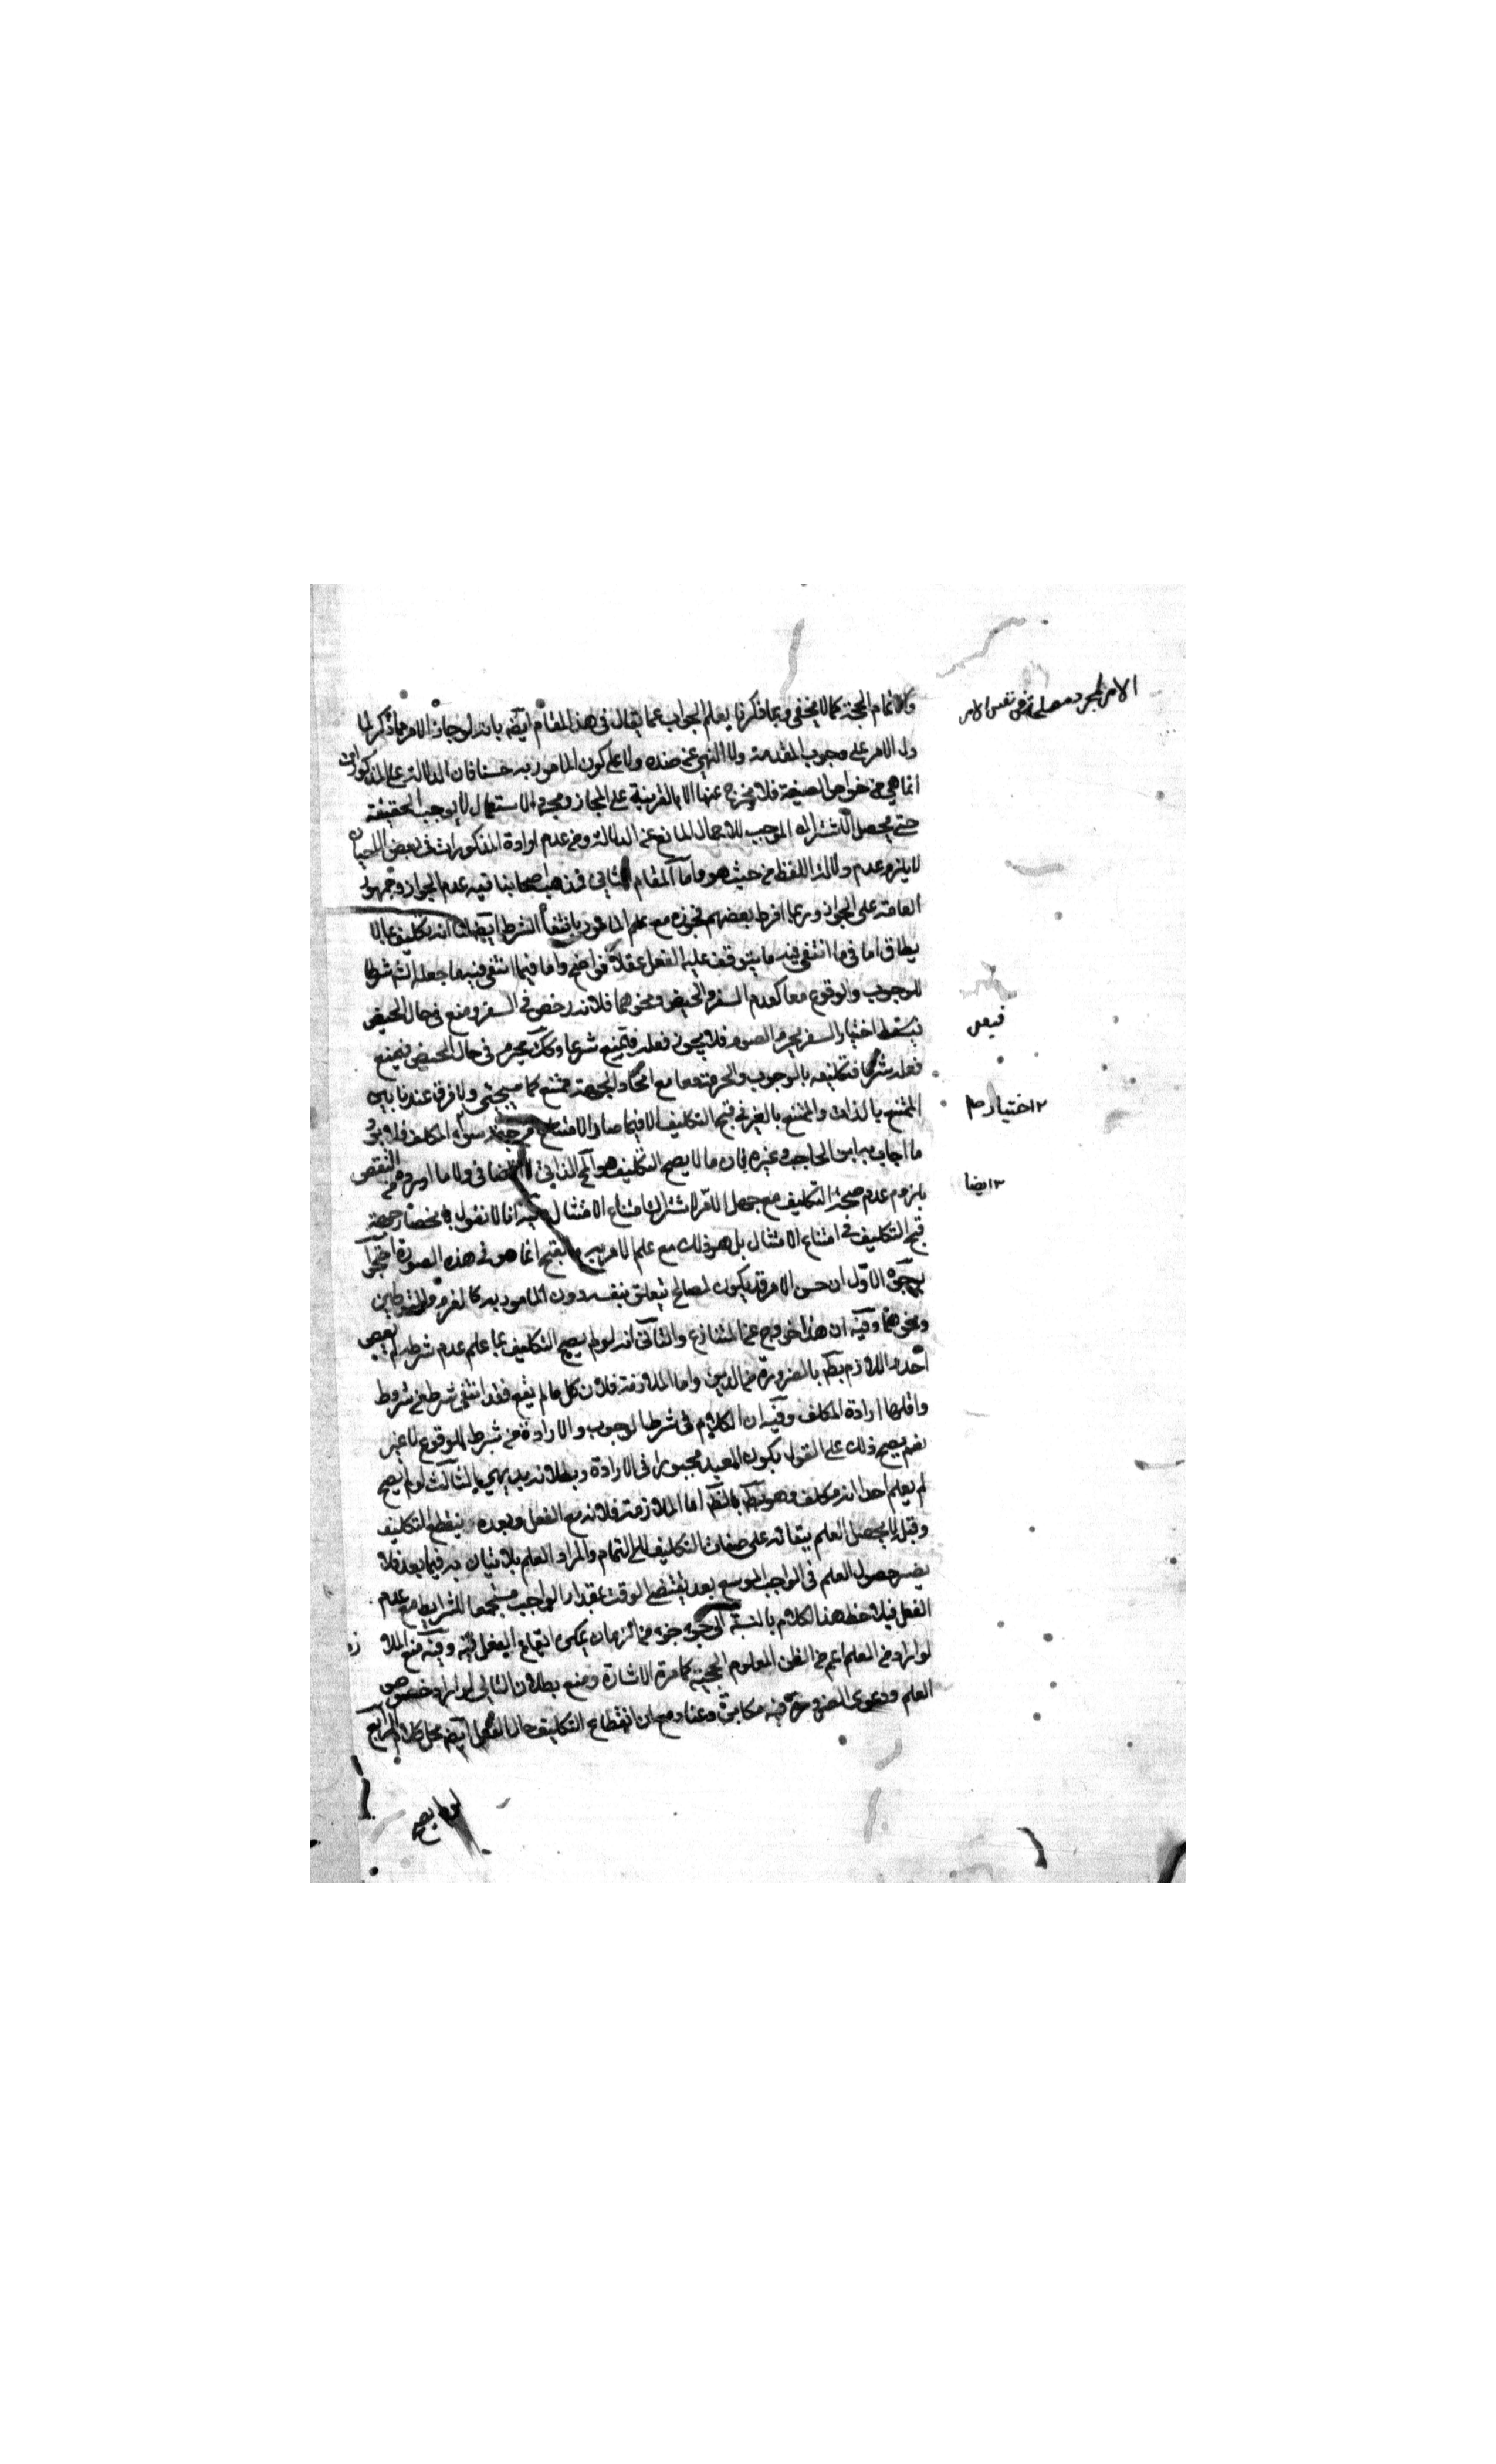 والاتمام الحجة كما لا يخفى وبما ذكرنا يعلم الجواب عما يقال في هذا المقام ايضه بانه لو جاز الامر لما ذكر لما
دل الامر على وجوب المقدمة ولا النهي عن ضده ولا على كون المامور به حسنا فان الدلالة على المذكورات
انما هي من خواص الصيغة فلا يخرج عنها الا بالقرينة على المجاز ومجرد الاستعمال لا يوجب الحقيقة
حتى يحصل الاشتراك الموجب للاجمال المانع عن الدلالة ومن عدم ارادة المذكورات في بعض الاحيان
لا يلزم عدم دلالة اللفظ من حيث هو واما المقام الثاني فذهب اصحابنا فيه عدم الجواز وجمهور
العامة على الجواز وربما افرط بعضهم فجوزه مع علم المامور بانتفاء الشرط ايضا لنا انه تكليف بما لا
يطاق اما في ما انتفى فيه ما يتوقف عليه الفعل عقلا فواضح واما فيما انتفى فيه ما جعله الشه شرطا
للوجوب والوقوع معا كعدم السفر والحيض ونحوهما فلانه رخص في السفر ومنع في حال الحيض
اختيار السفر يحرم الصوم فلا يجوز فعله فيمتنع شرعا وكك يحرم في حال الحيض فيمتنع
فعله شرعا فتكليفه بالوجوب والحرمة معا مع اتحاد الجهة ممتنع كما سيجئ ولا فرق عندنا بين
الممتنع بالذات والممتنع بالغير في قبح التكليف الا فيما صار الامتناع من جهة سوء المكلف فلا يرد
ما اجاب به ابن الحاجب وغيره بان ما لا يصح التكليف هو المح الذاتي لا الاضافي ولا ما اوردوه من النقض
بلزوم عدم صحة التكليف مع جهل الامر لاشتراك امتناع الامتثال فيه انا لا نقول بانحصار جهة
قبح التكليف في امتناع الامتثال بل هو ذلك مع علم الامر به والقبح انما هو في هذه الصورة احتجوا
بوجوه الاول ان حسن الامر قد يكون لمصالح يتعلق بنفسه دون المامور به كالعزم والتوطين
ونحوهما وفيه ان هذا خروج عن المتنازع والثاني انه لو لم يصح التكليف بما علم عدم شرطه لم يعص
احد واللازم بط بالضرورة من الدين واما الملازمة فلان كل ما لم يقع فقد انتفى شرط من شروط
واقلها ارادة المكلف وفيه ان الكلام في شرط الوجوب والارادة من شرط الوقوع لا غير
نعم يصح ذلك على القول بكون العبد مجبورا في الارادة وبطلانه بديهي والثالث لو لم يصح
لم يعلم احد انه مكلف وهو بط اما الملازمة فلانه مع الفعل وبعده ينقطع التكليف
وقبله لا يحصل العلم ببقائه على صفات التكليف الى التمام والمراد العلم بالاتيان به فيما بعد فلا
يضر حصول العلم في الواجب الموسع بعد تقضي الوقت بمقدار الواجب مستجمعا للشرايط مع عدم
الفعل فيلاحظ هذا الكلام بالنسبة الى جزء جزء من الزمان يمكن ايقاع الفعل فيه وفيه منع الملا
لو اراد من العلم اعم من الظن المعلوم الحجية كما مرة الاشارة ومنع بطلان التالي لو اراد خصوص
العلم ودعوى الضرورة فيه مكابرة وعناد مع ان انقطاع التكليف حال الفعل ايضه محل كلام الرابع
لو لم يصح
الامر لمجرد مصلحة في نفس الامر
فيعص
اختيار
ايضا